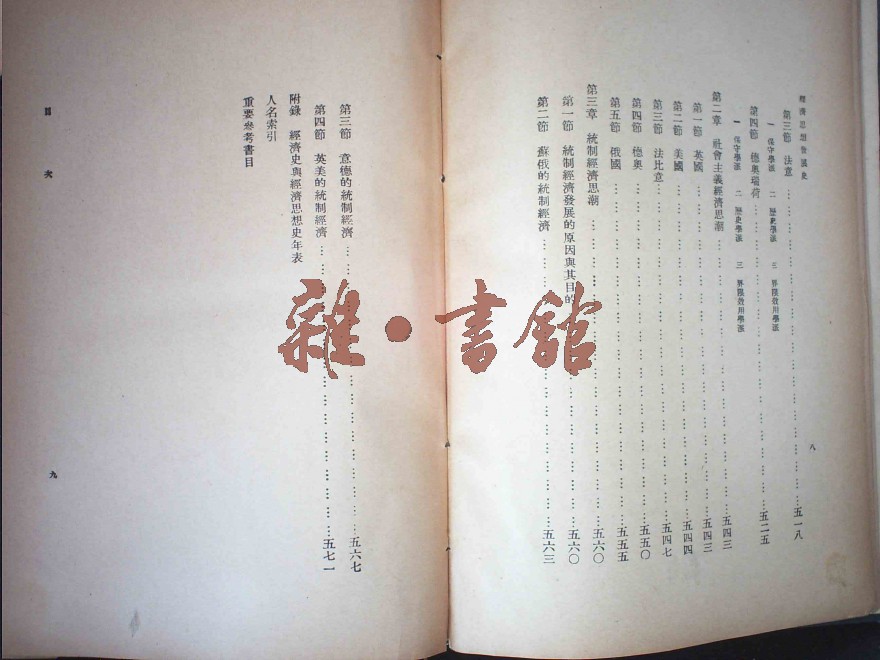 經濟思想發展史
第三節 法意……五一八
一 保守學派 二 歷史學派 三 界限效用學派
第四節 德奧瑞荷……五二五
一 保守學派 二 歷史學派 三 界限效用學派
第二章 社會主義經濟思潮……五四三
第一節 英國……五四三
第二節 美國……五四四
第三節 法比意……五四七
第四節 德奧……五五〇
第五節 俄國……五五五
第三章 統制經濟思潮……五六〇
第一節 統制經濟發展的原因與其目的……五六〇
第二節 蘇俄的統制經濟……五六三
八
第三節 意德的統制經濟……五六七
第四節 英美的統制經濟……五七一
附錄 經濟史與經濟思想史年表
人名索引
重要參考書目
目次
九
雜·書館